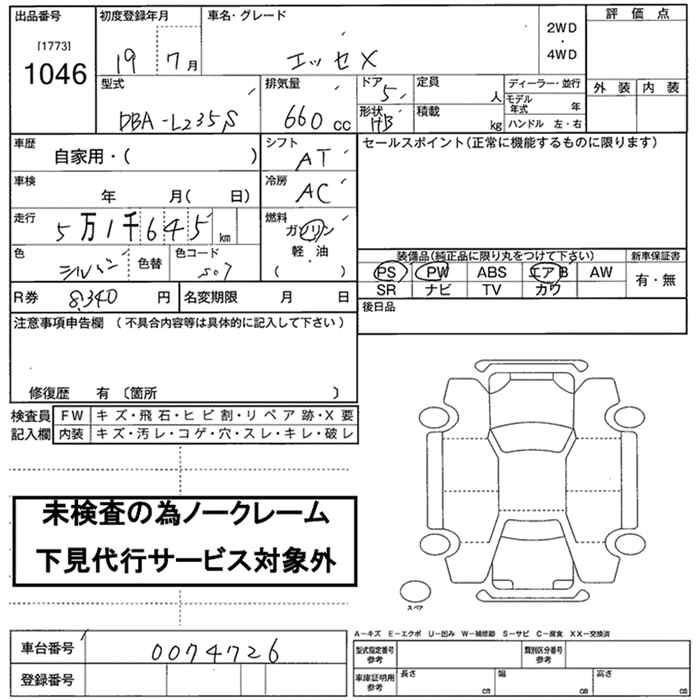 出品番号 初度登録年月 車名・グレード 2WD・4WD 評価点
[1773]
1046 19 7月 エッセX
型式 排気量 ドア 定員 ディーラー・並行 外装 内装
DBA-L235S 660cc 5 人 モデル年式 年
形状 HB 積載 kg ハンドル 左・右
車歴 シフト セールスポイント(正常に機能するものに限ります)
自家用・( ) AT
車検 冷房
年 月( 日) AC
走行 燃料
5万1千645km ガソリン
軽・油
( )
色 色替 色コード 装備品(純品に限り丸をつけて下さい) 新車保証書
シルバー 507 PS PW ABS エアB AW 有・無
SR ナビ TV カワ
R券 8,340円 名変期限 月 日 後日品
注意事項申告欄 (不具合内容等は具体的に記入して下さい)
修復歴 有〔箇所 〕
検査員記入欄 FW キズ・飛石・ヒビ割・リペア跡・X要
内装 キズ・汚レ・コゲ・穴・スレ・キレ・破レ
未検査の為ノークレーム
下見代行サービス対象外
スペア
A-キズ E-エクボ U-凹み W-補修跡 S-サビ C-腐食 XX-交換済
車台番号 0074726 型式指定番号参考 類別区分番号参考
登録番号 車庫証明用参考 長さ cm 幅 cm 高さ cm